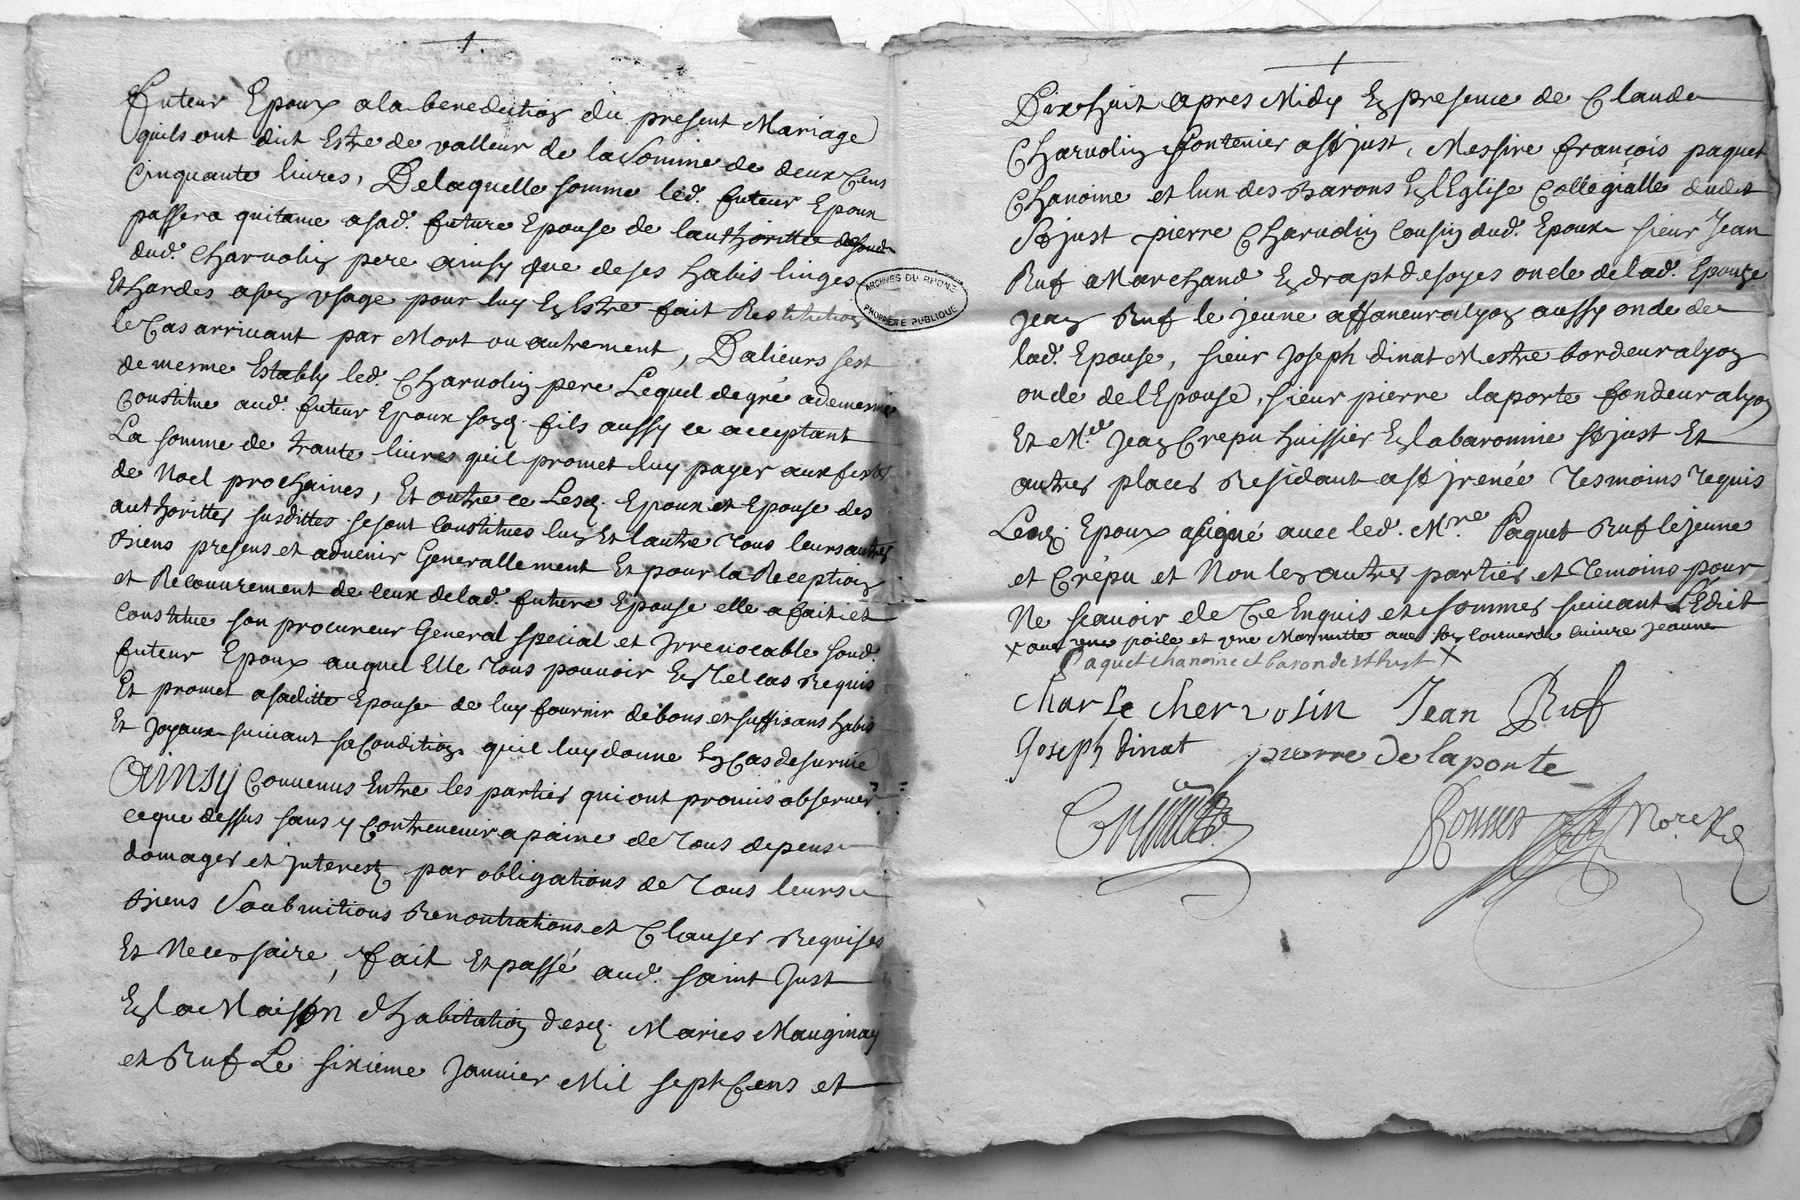 futeur Epoux a la benediction du present Mariage
quils ont dict Estre de valleur de la Somme de deux Cens
Cinquante liures, De laquelle somme led. futeur Epoux
passera quitance a sad. future Epouse de lauthoritté
dud. Charuolin pere ainsy que de ses habis linges
Et hardes a son vsage pour luy En Estre fait Restitution
le Cas arriuant par Mort ou autrement, Dalieurs sest
de meme Estably led. Charuolin pere Lequel de gré a de meme
Constitue aud. futeur Epoux sond. fils aussy ce acceptant
La somme de trante liures quil promet luy payer aux festes
de Noel prochaines, Et outre ce Lesd. Epoux et Epouse des
authorittes susdittes se sont Constitues lun Et lautre Tous leurs autres
Biens presens et aduenir Generallement Et pour la Reception
et Recouurement de ceux de lad. future Epouse elle a fait et
constitue son procureur General special et Irreuocable sond.
futeur Epoux auquel Elle Tous pouuoir En Tel cas Requis
Et promet a saditte Epouse de luy fournir de bons et suffisans habis
Et Joyaux suiuant sa Condition quil luy donne En Cas de suruie
Ainsy Conuenus Entre les parties qui ont promis obseruer
ce que dessus sans y Contreuenir a paine de Tous depens
domages et Interest par obligations de Tous leurs
Biens Soubmitions Renontiations et Clauses Requises
Et Necessaire, fait Et passé aud. saint Just
En la Maison dhabitation desd. Maries Mauginay
et Ruf Le sixieme Januier Mil sept Cens et
Dix huit apres Midy En presence de Claude
Charuolin fontenier a St just, Messire françois paquet
Chanoine et lun des Barons En lEglise Collegialle dudt
St just pierre Charuolin Cousin dud. Epoux sieur Jean
Ruf Marchand En drapt de soyes oncle de lad. Epouse
Jean Ruf le jeune affaneur a lyon aussy oncle de
lad. Epouse, sieur Joseph dinat Mestre bordeur a lyon
oncle de lEpouse, sieur pierre laporte fondeur a lyon
Et Me Jean Crepu huissier En la baronnie St just Et
autres places Residant a St Irenée Tesmoins requis
Led. Epoux a signé auec led. Mre Paquet Ruf le jeune
et Crépu et Non les autres parties et Temoins pour
Ne scauoir de Ce Enquis et sommes suiuant LEdict
X auec vne poile et vne Marmitte auec son couuercle cuiure jeaune
Paquet chanoine et baron de St Just X
charle cheruosin Jean Ruf
Joseph dinat pierre de laporte
Crepu
Bonnes Nore Rl
ARCHIVES DU RHÔNE
PROPRIÉTÉ PUBLIQUE